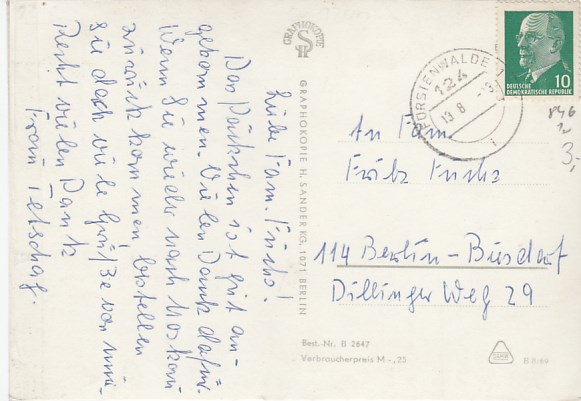 Liebe Fam. Fuchs!
Das Päckchen ist gut an-
gekommen. Vielen Dank dafür.
Wenn Sie wieder nach Moskau
zurück kommen bestellen
Sie doch viele Grüße von mir.
Recht vielen Dank
Frau
GRAPHOKOPIE
GRAPHOKOPIE H. SANDER KG, 1071 BERLIN
FÜRSTENWALDE
124
13.8
DEUTSCHE
DEMOKRATISCHE REPUBLIK
10
3,-
An Fam.
Fritz Fuchs
114 Berlin-Biesdorf
Dillinger Weg 29
Best.-Nr. B 2647
Verbraucherpreis M -,25